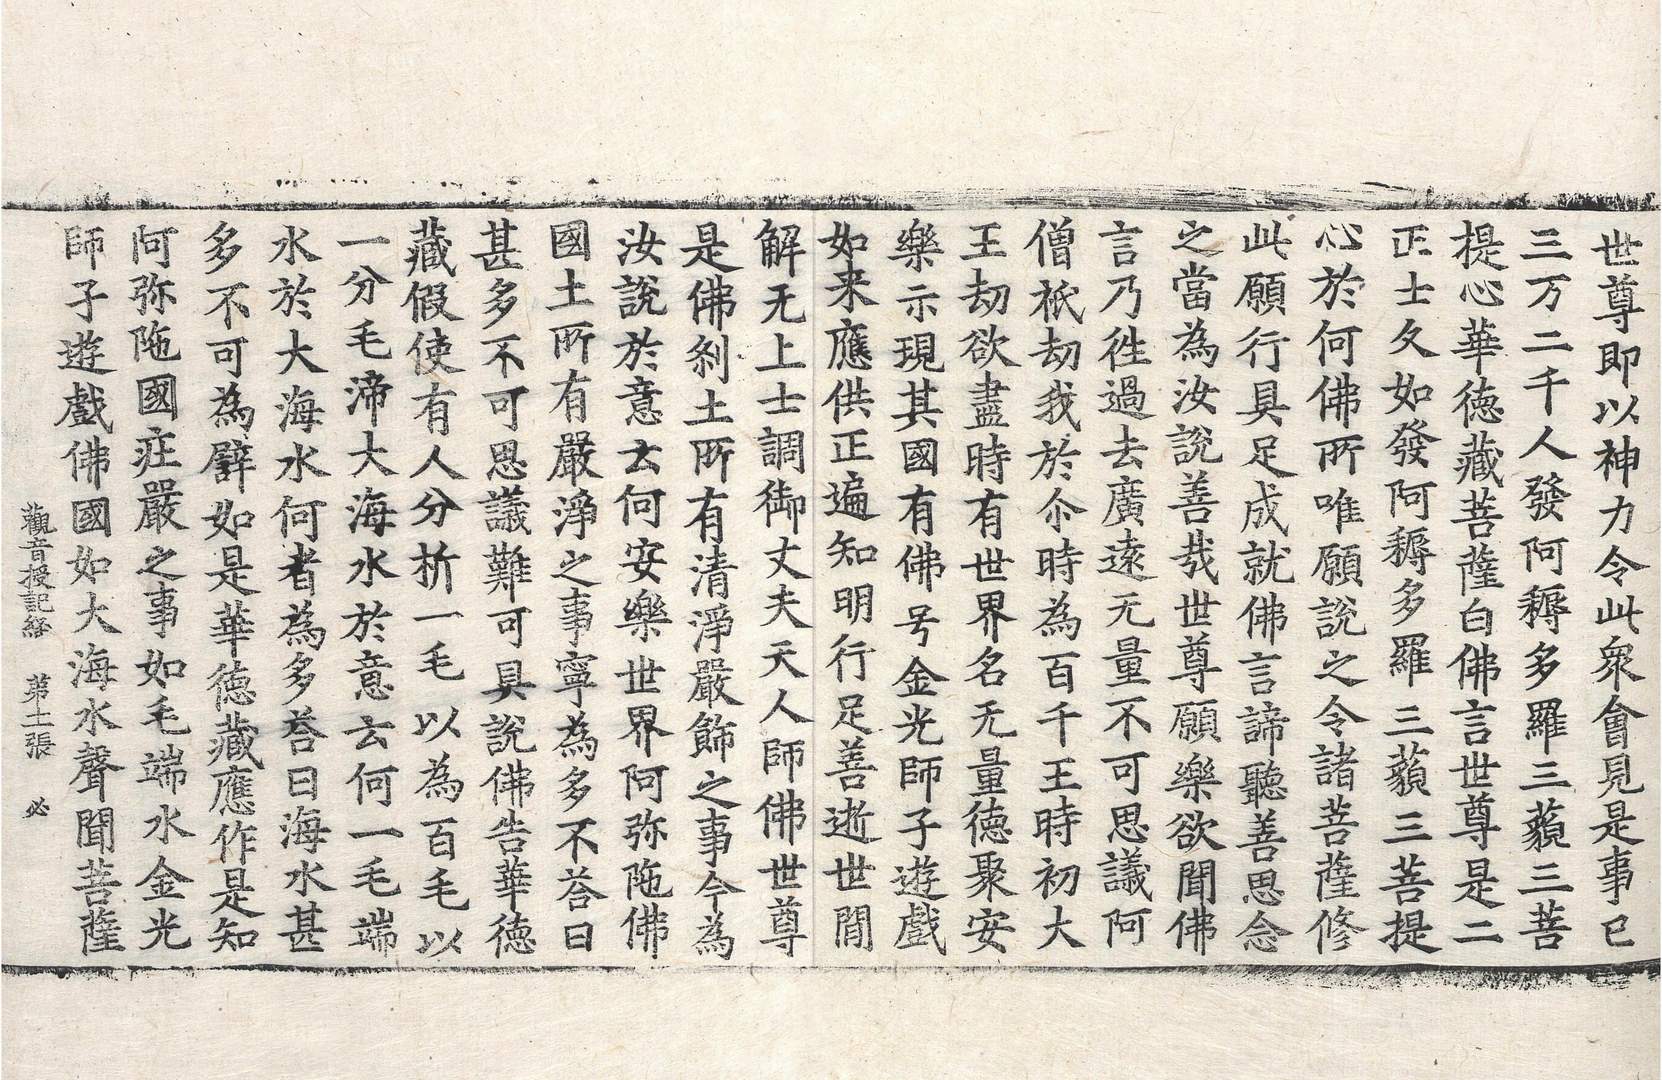 世尊即以神力令此衆會見是事已
三万二千人發阿耨多羅三藐三菩
提心華德藏菩薩白佛言世尊是二
正士久如發阿耨多羅三藐三菩提
心於何佛所唯願說之令諸菩薩修
此願行具足成就佛言諦聽善思念
之當為汝說善哉世尊願樂欲聞佛
言乃徃過去廣遠无量不可思議阿
僧祇劫我於尒時為百千王時初大
王劫欲盡時有世界名无量德聚安
樂示現其國有佛号金光師子遊戲
如来應供正遍知明行足善逝世間
解无上士調御丈夫天人師佛世尊
是佛刹土所有清淨嚴飾之事今為
汝說於意云何安樂世界阿弥陁佛
國土所有嚴淨之事寧為多不荅曰
甚多不可思議難可具說佛告華德
藏假使有人分析一毛以為百毛以
一分毛渧大海水於意云何一毛端
水於大海水何者為多荅曰海水甚
多不可為譬如是華德藏應作是知
阿弥陁國莊嚴之事如毛端水金光
師子遊戲佛國如大海水聲聞菩薩
觀音授記経　第十一張　必